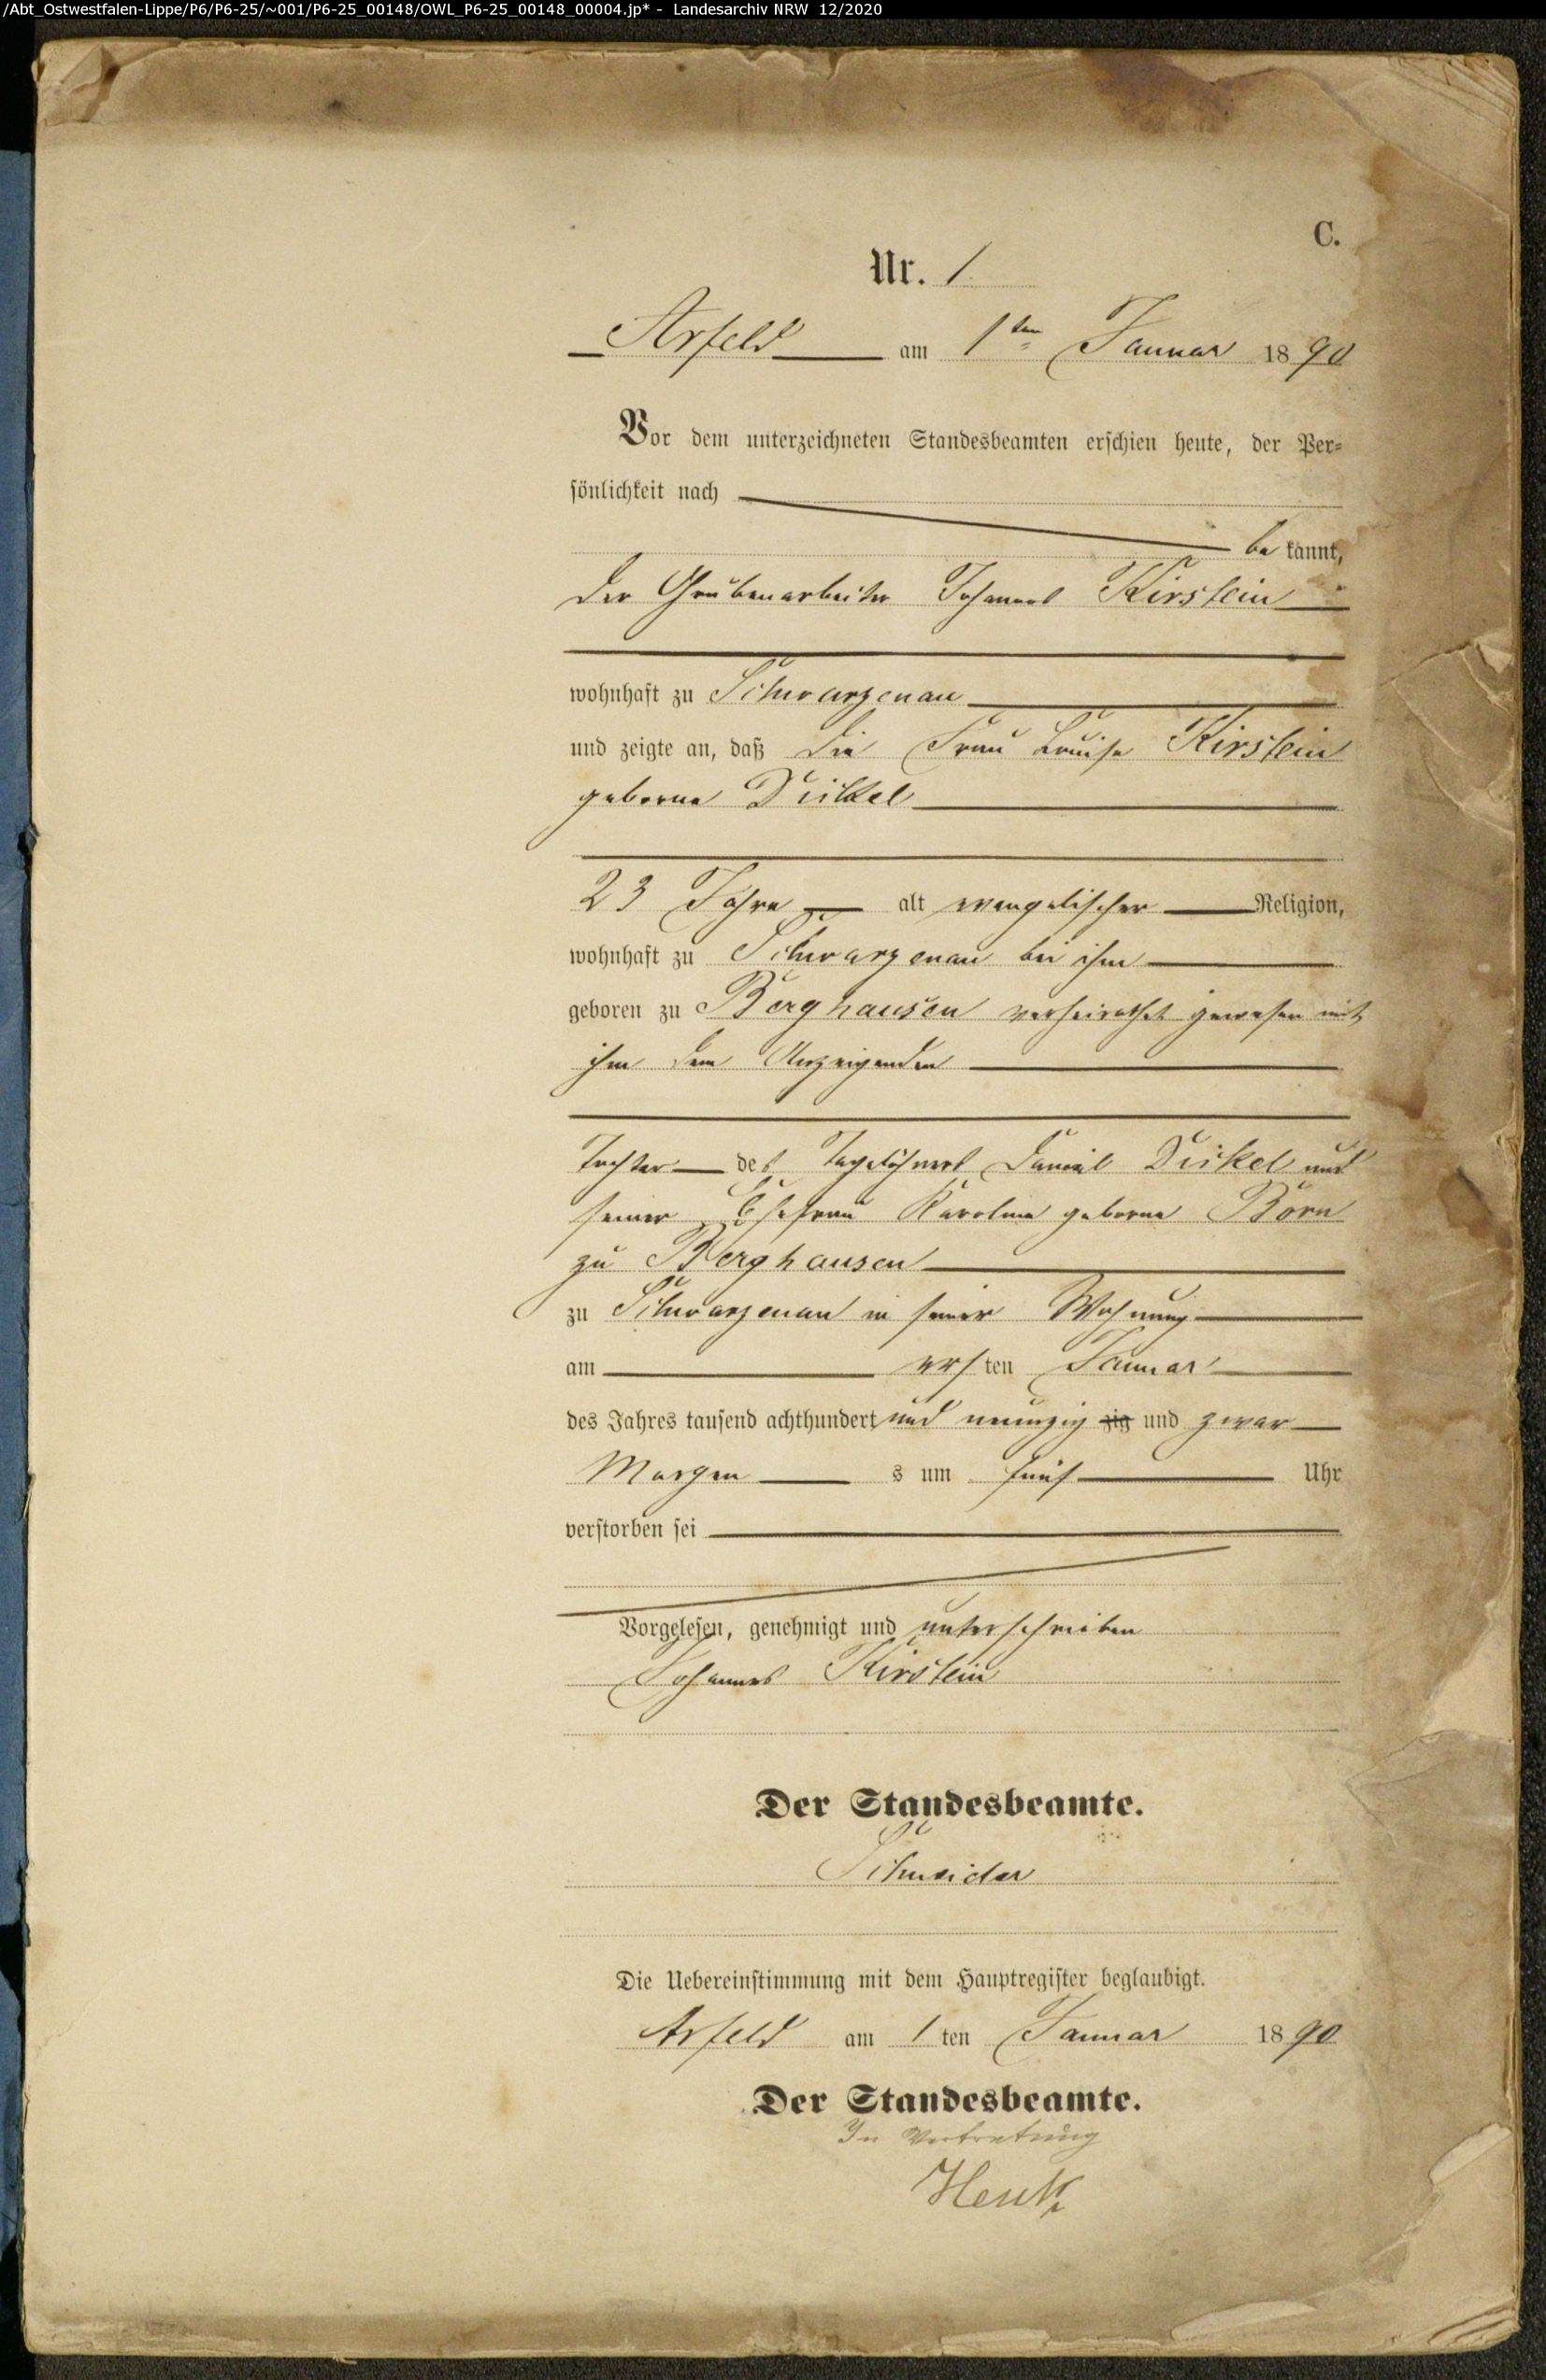 /Abt_Ostwestfalen-Lippe/P6/P6-25/~001/P6-25_00148/OWL_P6-25_00148_00004.jp* - Landesarchiv NRW 12/2020
C.
Nr. 1
Arfeld am 1ten Januar 1890
Vor dem unterzeichneten Standesbeamten erschien heute, der Per-
sönlichkeit nach
be kannt,
der Grubenarbeiter Johannes Kirstein
wohnhaft zu Schwarzenau
und zeigte an, daß die Frau Louise Kirstein
geborne
23 Jahre alt evangelischer Religion,
wohnhaft zu Schwarzenau bei ihm
geboren zu Berghausen verheirathet gewesen mit
ihm dem Anzeigenden
Tochter des Tagelöhners Daniel und
seiner Ehefrau Karoline geborne Born
zu Berghausen
zu Schwarzenau in seiner Wohnung
am ersten Januar
des Jahres tausend achthundert und neunzig zig und zwar
Morgen s um fünf Uhr
verstorben sei
Vorgelesen, genehmigt und unterschrieben
Johannes Kirstein
Der Standesbeamte.
Schneider
Die Uebereinstimmung mit dem Hauptregister beglaubigt.
Arfeld am 1 ten Januar 1890
Der Standesbeamte.
In Vertretung